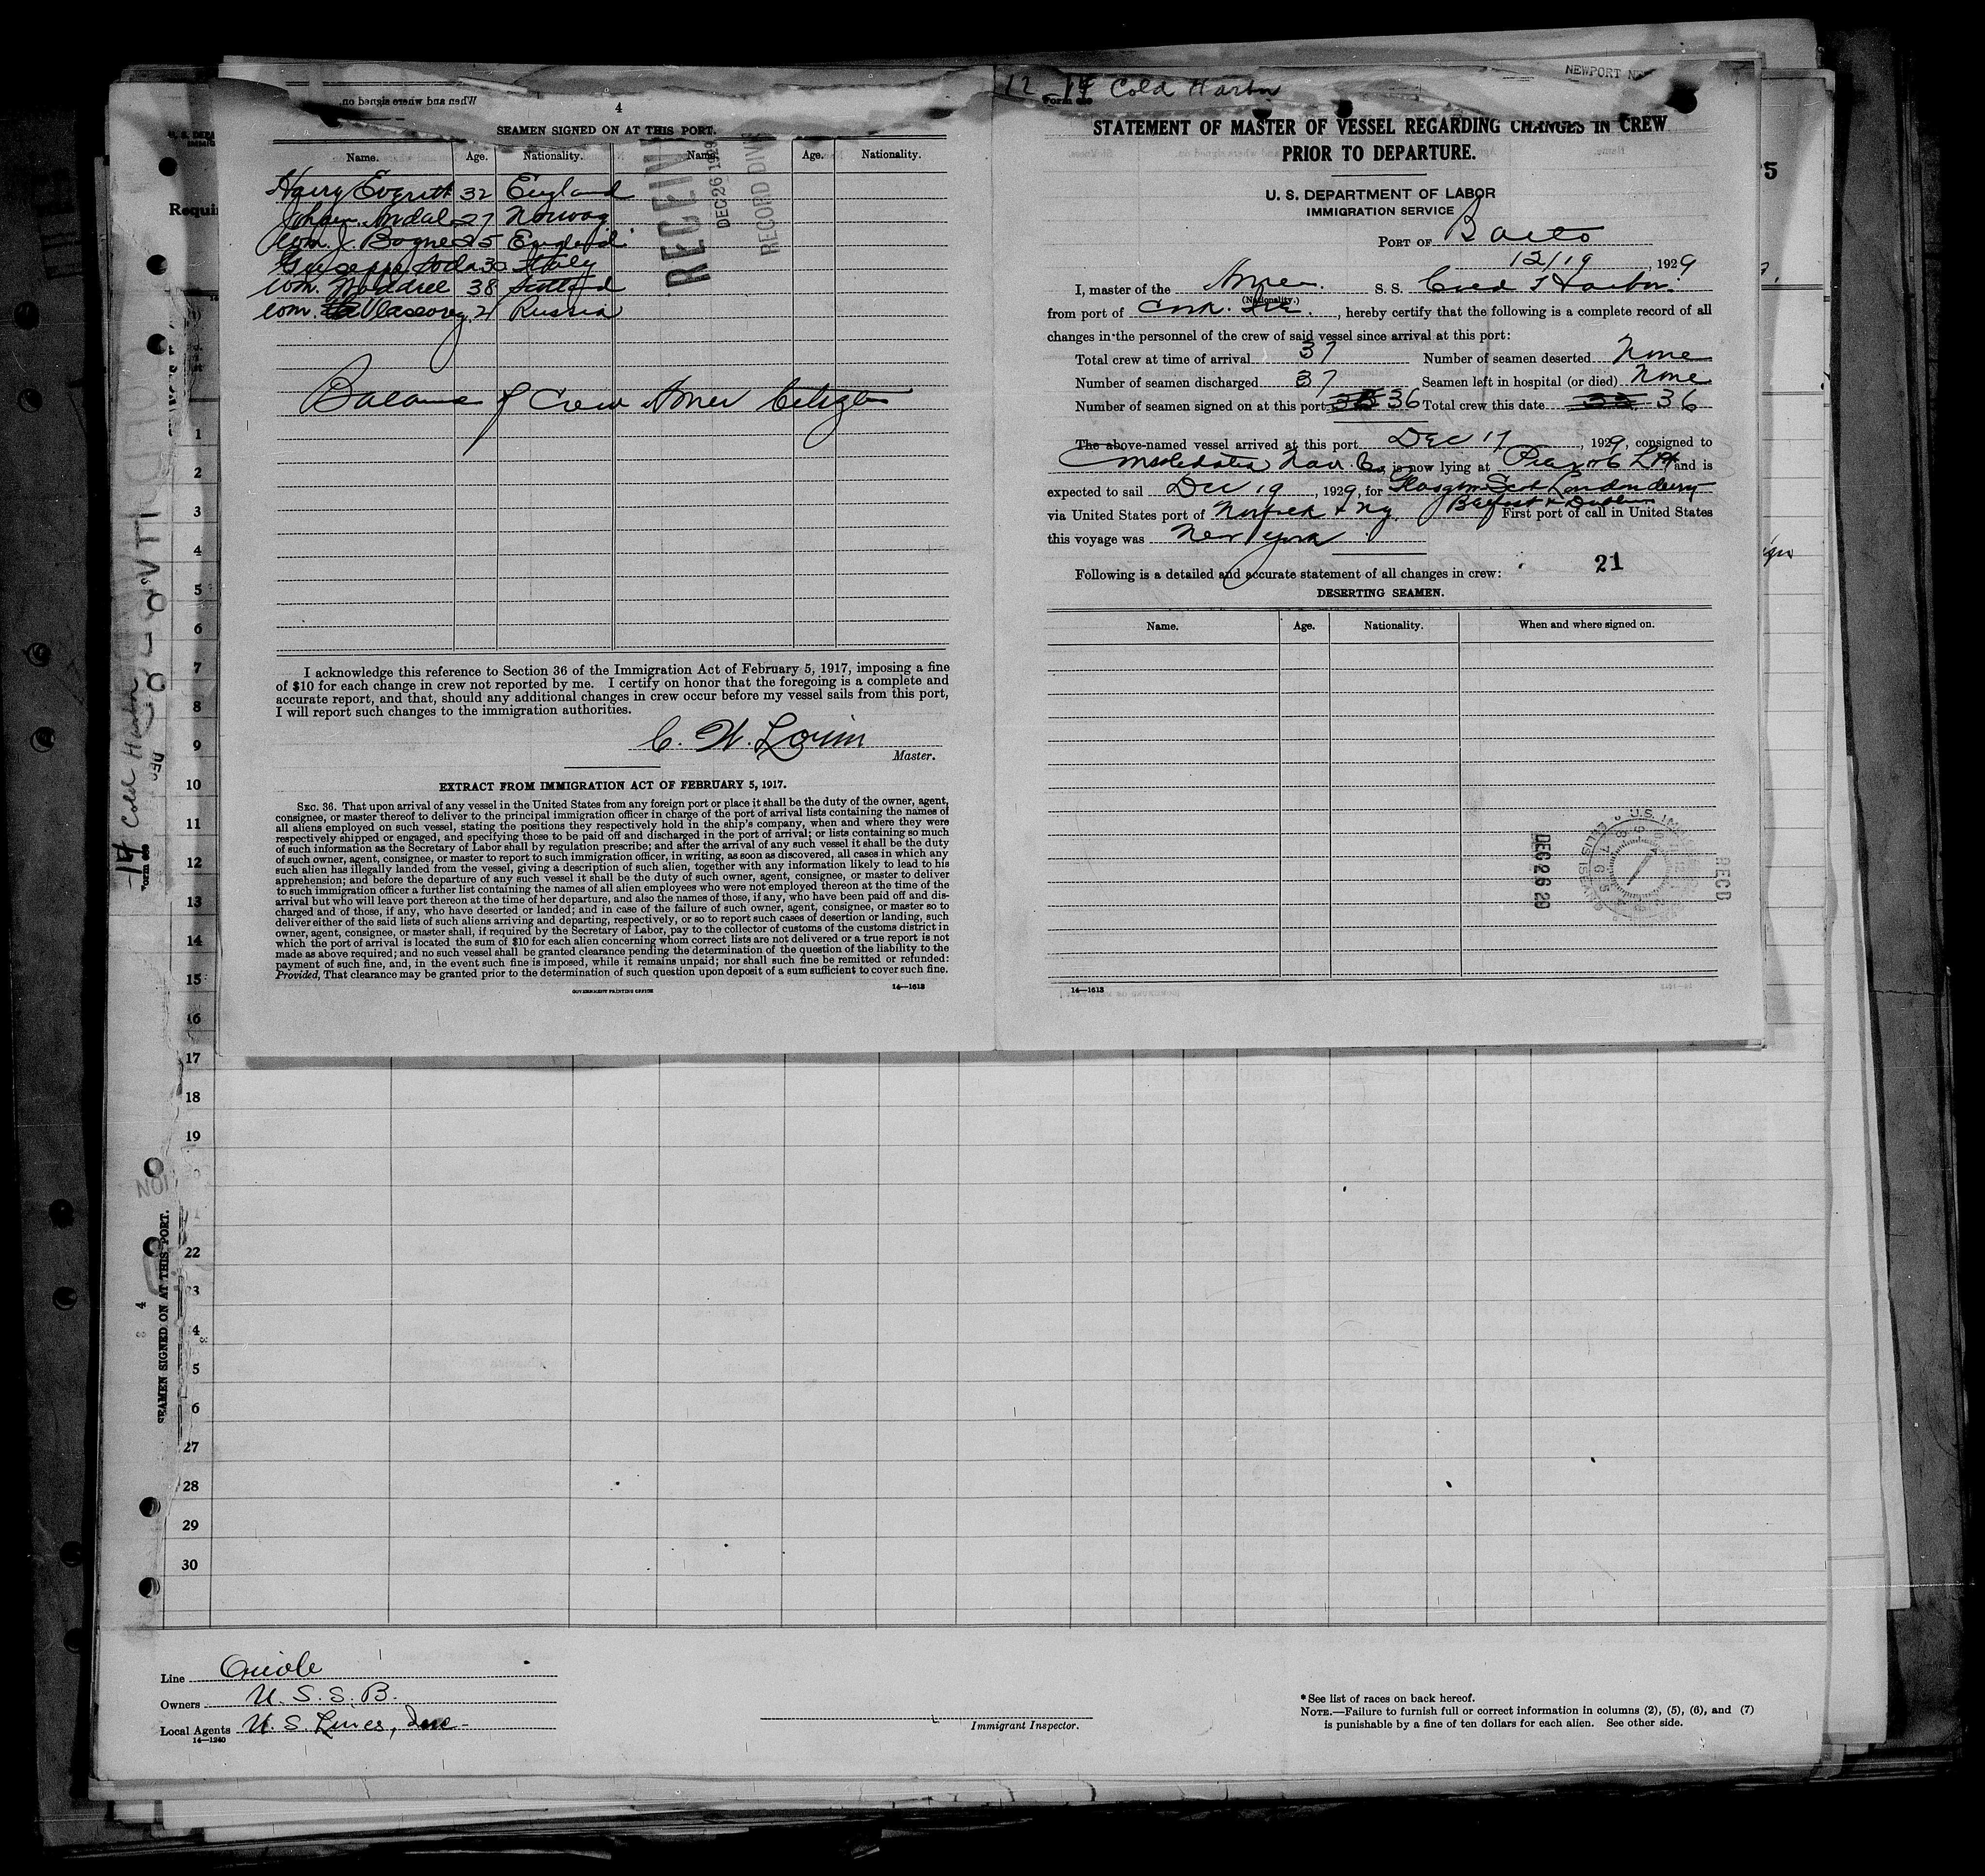 4
SEAMEN SIGNED ON AT THIS PORT.
Name. Age. Nationality. Name. Age. Nationality.
Harry Everitt 32 England
Johan Andal 27 Norway
Wm. J. Bogne 25 England
Giuseppe 30 Italy
Wm. Waddell 38 Scotland
Wm. 21 Russia
Balance of Crew Amer Citizens
I acknowledge this reference to Section 36 of the Immigration Act of February 5, 1917, imposing a fine
of $10 for each change in crew not reported by me. I certify on honor that the foregoing is a complete and
accurate report, and that, should any additional changes in crew occur before my vessel sails from this port,
I will report such changes to the immigration authorities.
C. W.
Master.
EXTRACT FROM IMMIGRATION ACT OF FEBRUARY 5, 1917.
SEC. 36. That upon arrival of any vessel in the United States from any foreign port or place it shall be the duty of the owner, agent,
consignee, or master thereof to deliver to the principal immigration officer in charge of the port of arrival lists containing the names of
all aliens employed on such vessel, stating the positions they respectively hold in the ship's company, when and where they were
respectively shipped or engaged, and specifying those to be paid off and discharged in the port of arrival; or lists containing so much
of such information as the Secretary of Labor shall by regulation prescribe; and after the arrival of any such vessel it shall be the duty
of such owner, agent, consignee, or master to report to such immigration officer, in writing, as soon as discovered, all cases in which any
such alien has illegally landed from the vessel, giving a description of such alien, together with any information likely to lead to his
apprehension; and before the departure of any such vessel it shall be the duty of such owner, agent, consignee, or master to deliver
to such immigration officer a further list containing the names of all alien employees who were not employed thereon at the time of the
arrival but who will leave port thereon at the time of her departure, and also the names of those, if any, who have been paid off and dis-
charged and of those, if any, who have deserted or landed; and in case of the failure of such owner, agent, consignee, or master so to
deliver either of the said lists of such aliens arriving and departing, respectively, or so to report such cases of desertion or landing, such
owner, agent, consignee, or master shall, if required by the Secretary of Labor, pay to the collector of customs of the customs district in
which the port of arrival is located the sum of $10 for each alien concerning whom correct lists are not delivered or a true report is not
made as above required; and no such vessel shall be granted clearance pending the determination of the question of the liability to the
payment of such fine, and, in the event such fine is imposed, while it remains unpaid; nor shall such fine be remitted or refunded:
Provided, That clearance may be granted prior to the determination of such question upon deposit of a sum sufficient to cover such fine.
GOVERNMENT PRINTING OFFICE 14—1613
DEC 26 1929
RECORD DIV
12 14 Cold Harbor
NEWPORT
STATEMENT OF MASTER OF VESSEL REGARDING CHANGES IN CREW
PRIOR TO DEPARTURE.
U. S. DEPARTMENT OF LABOR
IMMIGRATION SERVICE
PORT OF Balto
12/19, 1929
I, master of the Amer. S. S. Cold Harbor.
(Nationality.)
from port of Cork. Ire., hereby certify that the following is a complete record of all
changes in the personnel of the crew of said vessel since arrival at this port:
Total crew at time of arrival 37 Number of seamen deserted None
Number of seamen discharged 37 Seamen left in hospital (or died) None
Number of seamen signed on at this port 36 Total crew this date 36
The above-named vessel arrived at this port Dec 17, 1929, consigned to
Consolidated Nav. Co, is now lying at Pier 6 and is
expected to sail Dec 19, 1929, for Glasgow Scot Londonderry
Belfast + Dublin
via United States port of Norfolk + Ny First port of call in United States
this voyage was New York
Following is a detailed and accurate statement of all changes in crew: 21
DESERTING SEAMEN.
Name. Age. Nationality. When and where signed on.
DEC 26 29
REC'D
14—1613
Cold Harbor
14
SEAMEN SIGNED ON AT THIS PORT.
4
1
2
3
4
5
6
7
8
9
10
11
12
13
14
15
16
17
18
19
22
27
28
29
30
Line Oriole
Owners U. S. S. B.
Local Agents U. S. Lines, Inc.
14—1240
Immigrant Inspector.
*See list of races on back hereof.
NOTE.—Failure to furnish full or correct information in columns (2), (5), (6), and (7)
is punishable by a fine of ten dollars for each alien. See other side.